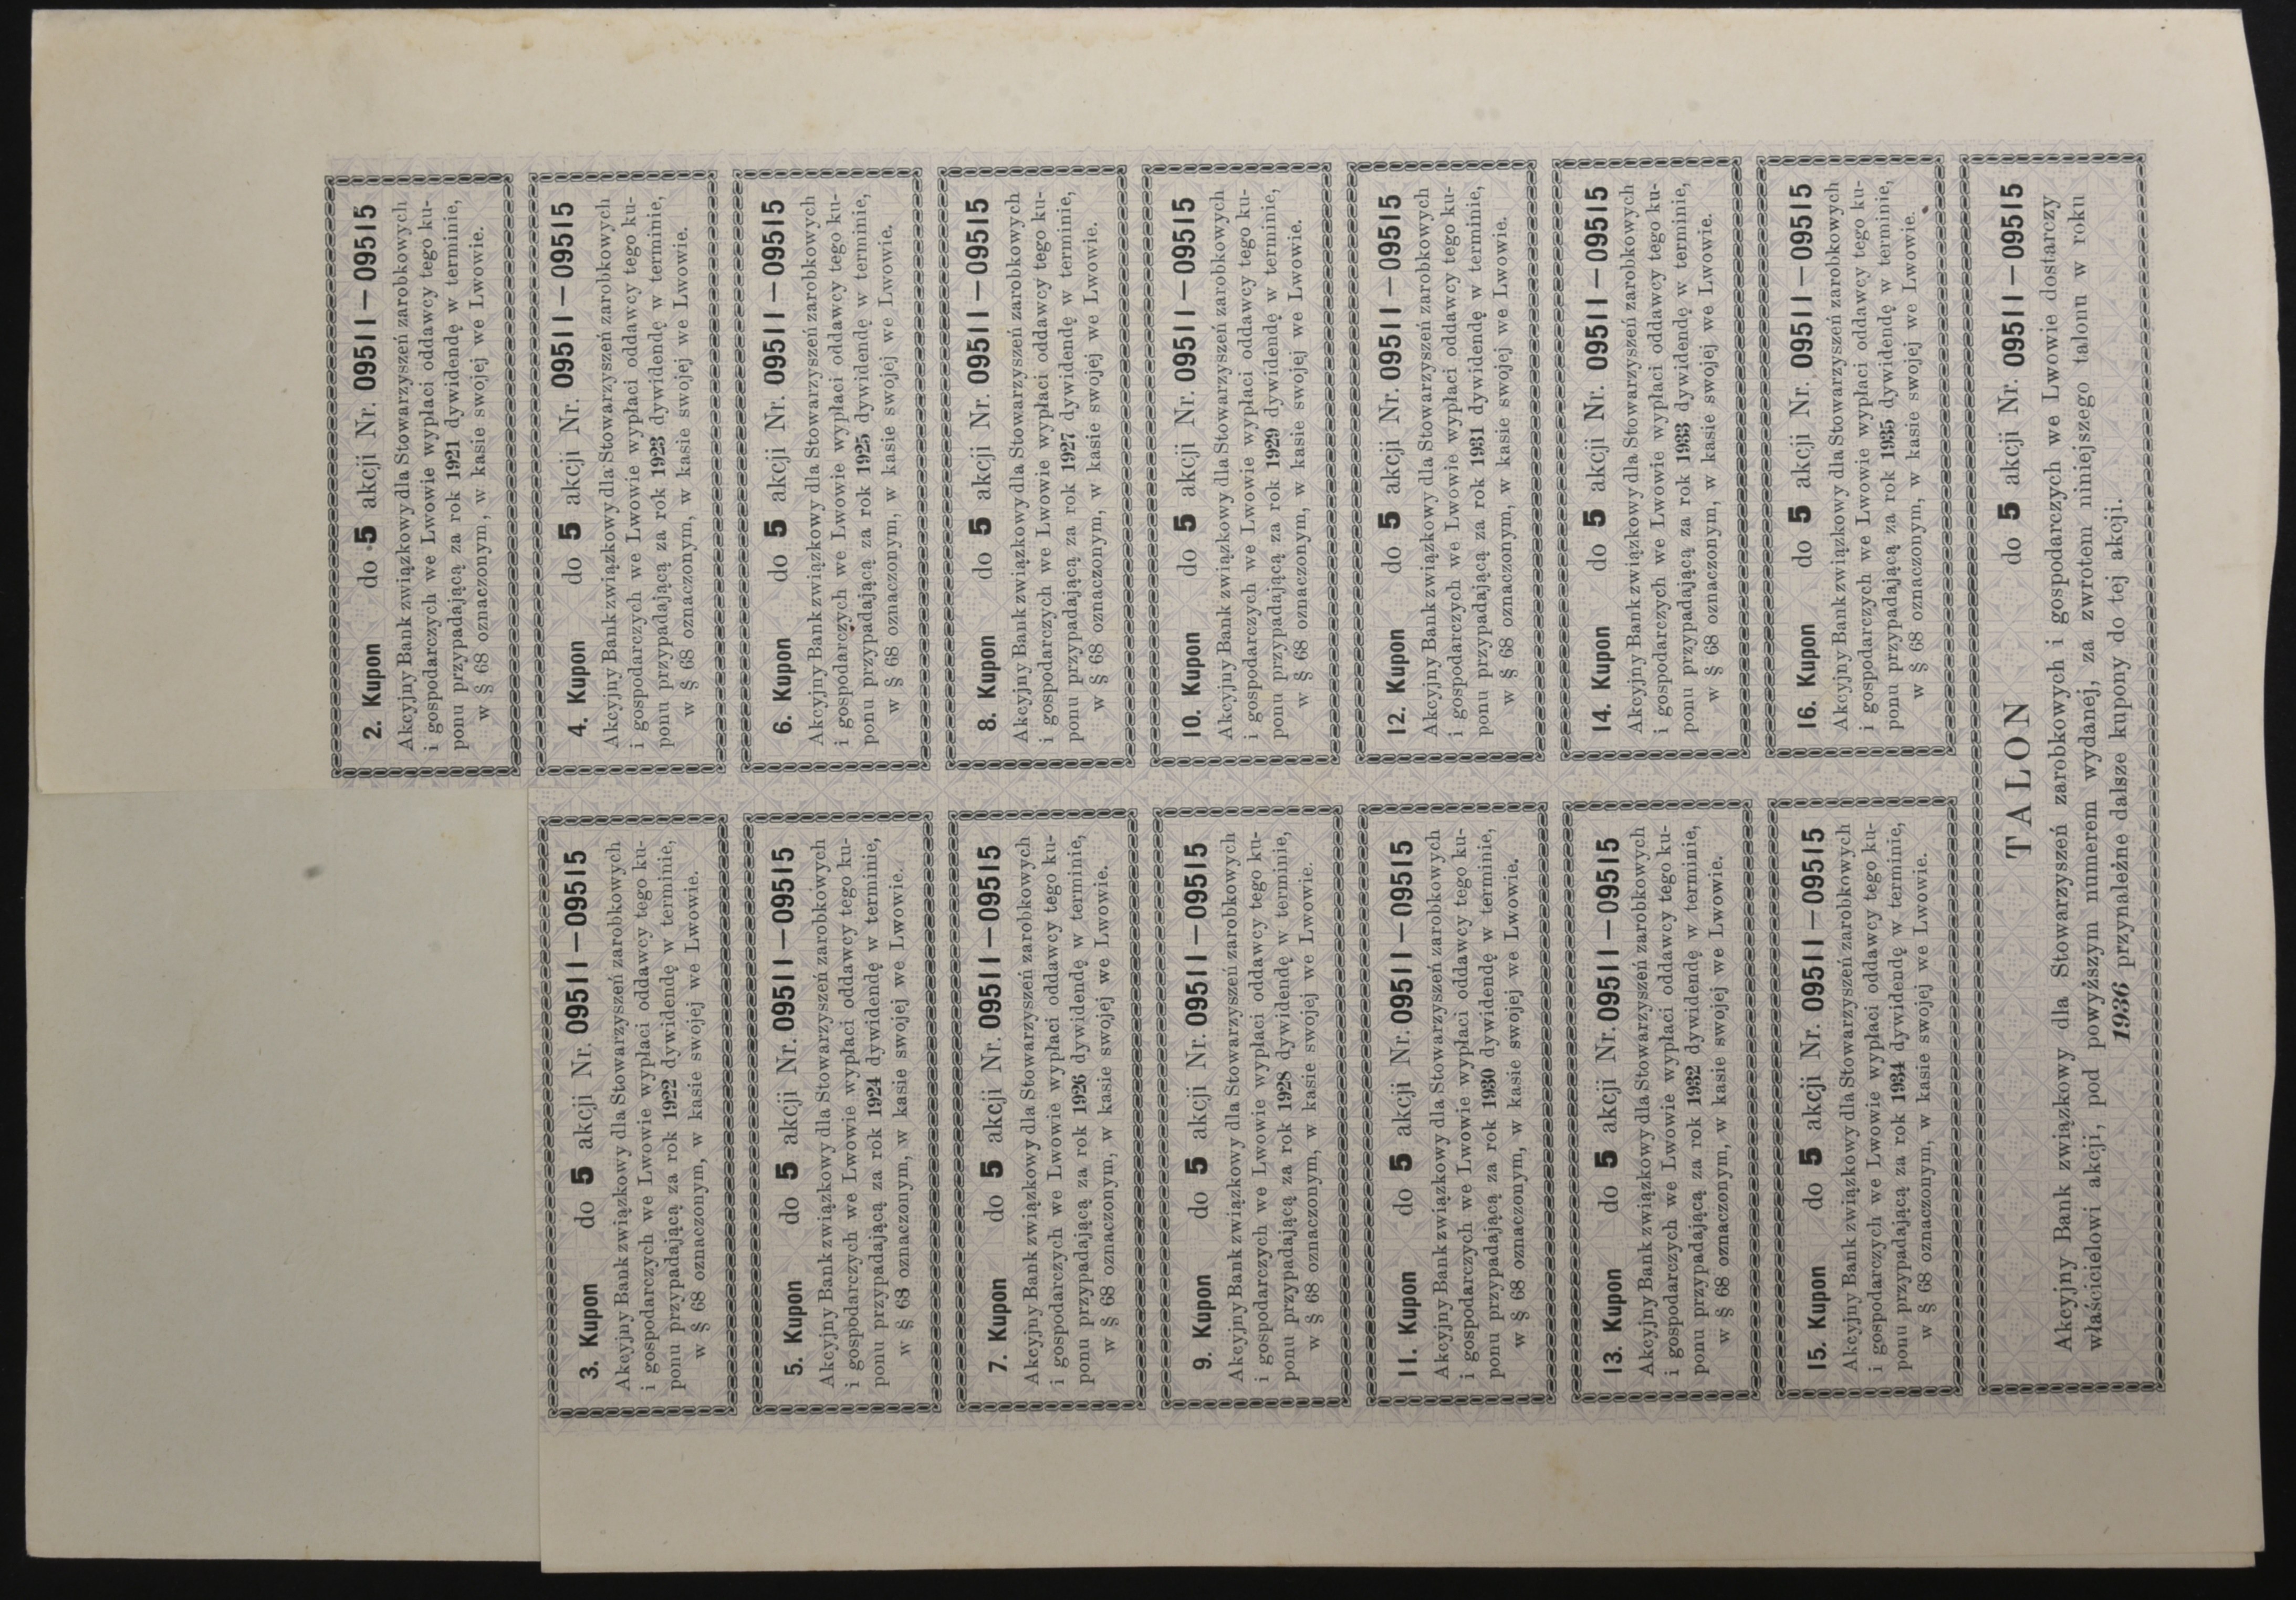 2. Kupon do 5 akcji Nr. 09511—09515
Akcyjny Bank związkowy dla Stowarzyszeń zarobkowych
i gospodarczych we Lwowie wypłaci oddawcy tego ku-
ponu przypadającą za rok 1921 dywidendę w terminie,
w § 68 oznaczonym, w kasie swojej we Lwowie.
3. Kupon do 5 akcji Nr. 09511—09515
Akcyjny Bank związkowy dla Stowarzyszeń zarobkowych
i gospodarczych we Lwowie wypłaci oddawcy tego ku-
ponu przypadającą za rok 1922 dywidendę w terminie,
w § 68 oznaczonym, w kasie swojej we Lwowie.
4. Kupon do 5 akcji Nr. 09511—09515
Akcyjny Bank związkowy dla Stowarzyszeń zarobkowych
i gospodarczych we Lwowie wypłaci oddawcy tego ku-
ponu przypadającą za rok 1923 dywidendę w terminie,
w § 68 oznaczonym, w kasie swojej we Lwowie.
5. Kupon do 5 akcji Nr. 09511—09515
Akcyjny Bank związkowy dla Stowarzyszeń zarobkowych
i gospodarczych we Lwowie wypłaci oddawcy tego ku-
ponu przypadającą za rok 1924 dywidendę w terminie,
w § 68 oznaczonym, w kasie swojej we Lwowie.
6. Kupon do 5 akcji Nr. 09511—09515
Akcyjny Bank związkowy dla Stowarzyszeń zarobkowych
i gospodarczych we Lwowie wypłaci oddawcy tego ku-
ponu przypadającą za rok 1925 dywidendę w terminie,
w § 68 oznaczonym, w kasie swojej we Lwowie.
7. Kupon do 5 akcji Nr. 09511—09515
Akcyjny Bank związkowy dla Stowarzyszeń zarobkowych
i gospodarczych we Lwowie wypłaci oddawcy tego ku-
ponu przypadającą za rok 1926 dywidendę w terminie,
w § 68 oznaczonym, w kasie swojej we Lwowie.
8. Kupon do 5 akcji Nr. 09511—09515
Akcyjny Bank związkowy dla Stowarzyszeń zarobkowych
i gospodarczych we Lwowie wypłaci oddawcy tego ku-
ponu przypadającą za rok 1927 dywidendę w terminie,
w § 68 oznaczonym, w kasie swojej we Lwowie.
9. Kupon do 5 akcji Nr. 09511—09515
Akcyjny Bank związkowy dla Stowarzyszeń zarobkowych
i gospodarczych we Lwowie wypłaci oddawcy tego ku-
ponu przypadającą za rok 1928 dywidendę w terminie,
w § 68 oznaczonym, w kasie swojej we Lwowie.
10. Kupon do 5 akcji Nr. 09511—09515
Akcyjny Bank związkowy dla Stowarzyszeń zarobkowych
i gospodarczych we Lwowie wypłaci oddawcy tego ku-
ponu przypadającą za rok 1929 dywidendę w terminie,
w § 68 oznaczonym, w kasie swojej we Lwowie.
11. Kupon do 5 akcji Nr. 09511—09515
Akcyjny Bank związkowy dla Stowarzyszeń zarobkowych
i gospodarczych we Lwowie wypłaci oddawcy tego ku-
ponu przypadającą za rok 1930 dywidendę w terminie,
w § 68 oznaczonym, w kasie swojej we Lwowie.
12. Kupon do 5 akcji Nr. 09511—09515
Akcyjny Bank związkowy dla Stowarzyszeń zarobkowych
i gospodarczych we Lwowie wypłaci oddawcy tego ku-
ponu przypadającą za rok 1931 dywidendę w terminie,
w § 68 oznaczonym, w kasie swojej we Lwowie.
13. Kupon do 5 akcji Nr. 09511—09515
Akcyjny Bank związkowy dla Stowarzyszeń zarobkowych
i gospodarczych we Lwowie wypłaci oddawcy tego ku-
ponu przypadającą za rok 1932 dywidendę w terminie,
w § 68 oznaczonym, w kasie swojej we Lwowie.
14. Kupon do 5 akcji Nr. 09511—09515
Akcyjny Bank związkowy dla Stowarzyszeń zarobkowych
i gospodarczych we Lwowie wypłaci oddawcy tego ku-
ponu przypadającą za rok 1933 dywidendę w terminie,
w § 68 oznaczonym, w kasie swojej we Lwowie.
15. Kupon do 5 akcji Nr. 09511—09515
Akcyjny Bank związkowy dla Stowarzyszeń zarobkowych
i gospodarczych we Lwowie wypłaci oddawcy tego ku-
ponu przypadającą za rok 1934 dywidendę w terminie,
w § 68 oznaczonym, w kasie swojej we Lwowie.
16. Kupon do 5 akcji Nr. 09511—09515
Akcyjny Bank związkowy dla Stowarzyszeń zarobkowych
i gospodarczych we Lwowie wypłaci oddawcy tego ku-
ponu przypadającą za rok 1935 dywidendę w terminie,
w § 68 oznaczonym, w kasie swojej we Lwowie.
TALON do 5 akcji Nr. 09511—09515
Akcyjny Bank związkowy dla Stowarzyszeń zarobkowych i gospodarczych we Lwowie dostarczy
właścicielowi akcji, pod powyższym numerem wydanej, za zwrotem niniejszego talonu w roku
1936 przynależne dalsze kupony do tej akcji.